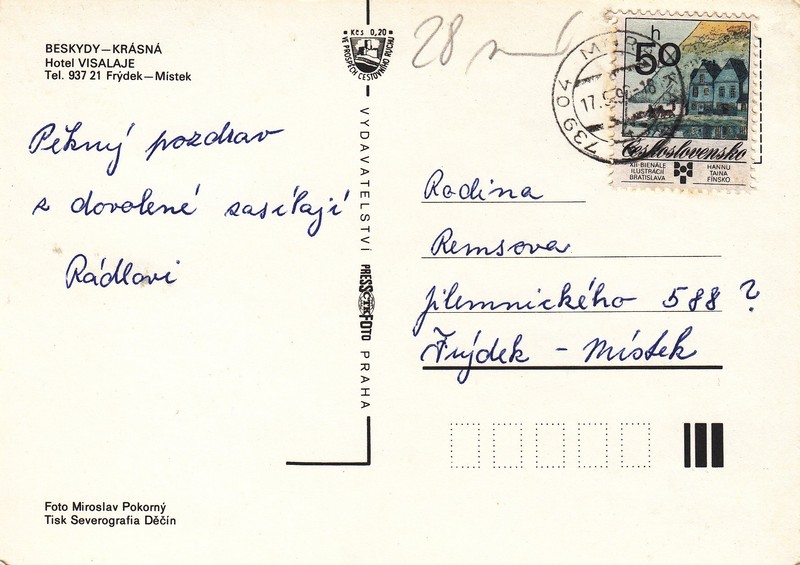 BESKYDY—KRÁSNÁ
Hotel VISALAJE
Tel. 937 21 Frýdek—Místek
Pěkný pozdrav
z dovolené zasílají
Rádlovi
Kčs 0,20
VE PROSPĚCH CESTOVNÍHO RUCHU
VYDAVATELSTVÍ PRESSFOTO PRAHA
ČTK
28
739 04
17.9.9
50 h
Československo
XII. BIENÁLE
ILUSTRÁCIÍ
BRATISLAVA
HANNU
TAINA
FÍNSKO
Rodina
Remsova
Jilemnického 588 ?
Frýdek - Místek
Foto Miroslav Pokorný
Tisk Severografia Děčín